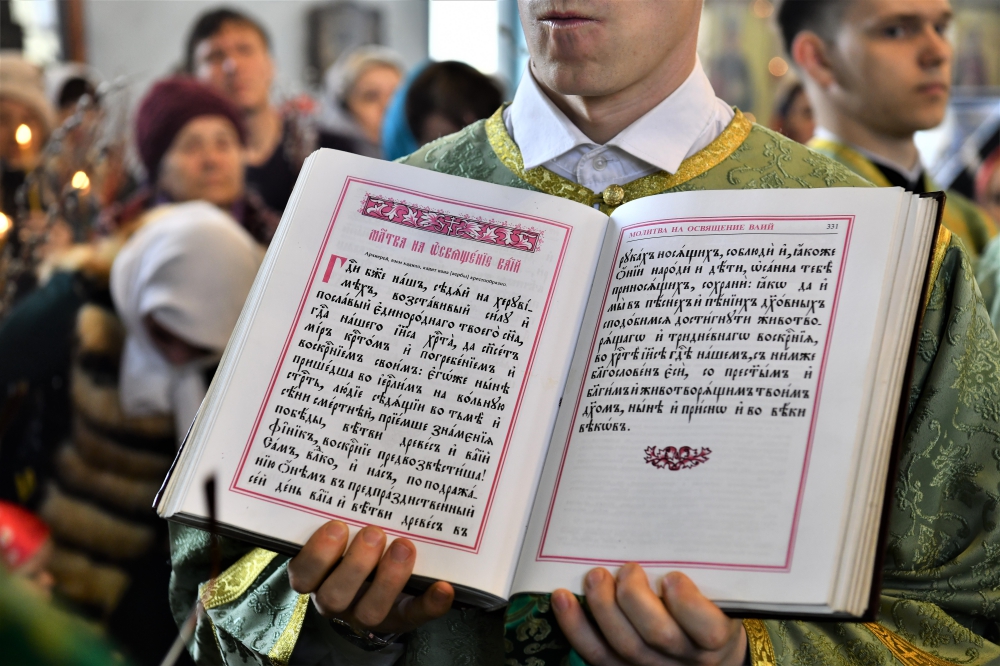 МЛ҃тва на ѡ҆свѧще́нїе ва́їй
Гдⷭ҇и бж҃е на́шъ, сѣдѧ́й на херꙋві́-
мѣхъ, возста́вивый си́лꙋ и҆
посла́вый є҆диноро́днаго твоего̀ сн҃а,
гдⷭ҇а на́шего і҆и҃са хрⷭ҇та̀, да сп҃се́тъ
мі́ръ крⷭ҇то́мъ и҆ погребе́нїемъ и҆
воскрⷭ҇нїемъ свои́мъ: є҆го́же ны́нѣ
прише́дша во і҆ерⷭ҇ли́мъ на во́льнꙋю
стрⷭ҇ть, лю́дїе сѣдѧ́щїи во тьмѣ̀ и҆
сѣ́ни сме́ртнѣй, прїе́мше зна́менїѧ
побѣ́ды, вѣ́тви древе́съ и҆ ва́їй
фі́нїкъ, воскрⷭ҇нїе предвозвѣсти́ша!
Са́мъ, влⷣко, и҆ на́съ, по подража́-
нїю ѻ҆́нѣмъ въ предпра́здественный
се́й де́нь ва́їа и҆ вѣ́тви древе́съ въ
МОЛИТВА НА ОСВЯЩЕНИЕ ВАИЙ 331
рꙋка́хъ носѧ́щихъ, соблюдѝ и҆, ꙗ҆́коже
ѻ҆́нїи наро́ди и҆ дѣ́ти, ѡ҆са́нна тебѣ̀
принося́щихъ, сохранѝ: ꙗ҆́кѡ да и҆
мы̀ въ пѣ́снехъ и҆ пѣ́нїихъ дꙋхо́вныхъ
сподо́бимсѧ дости́гнꙋти живо́тво-
рѧ́щагѡ и҆ тридне́внагѡ воскрⷭ҇нїѧ,
во хрⷭ҇тѣ̀ і҆и҃сѣ гдⷭ҇ѣ на́шемъ, съ ни́мже
бл҃гослове́нъ є҆сѝ, со прест҃ы́мъ и҆
бл҃ги́мъ и҆ животворѧ́щимъ твои́мъ
дх҃омъ, ны́нѣ и҆ при́снѡ и҆ во вѣ́ки
вѣкѡ́въ.